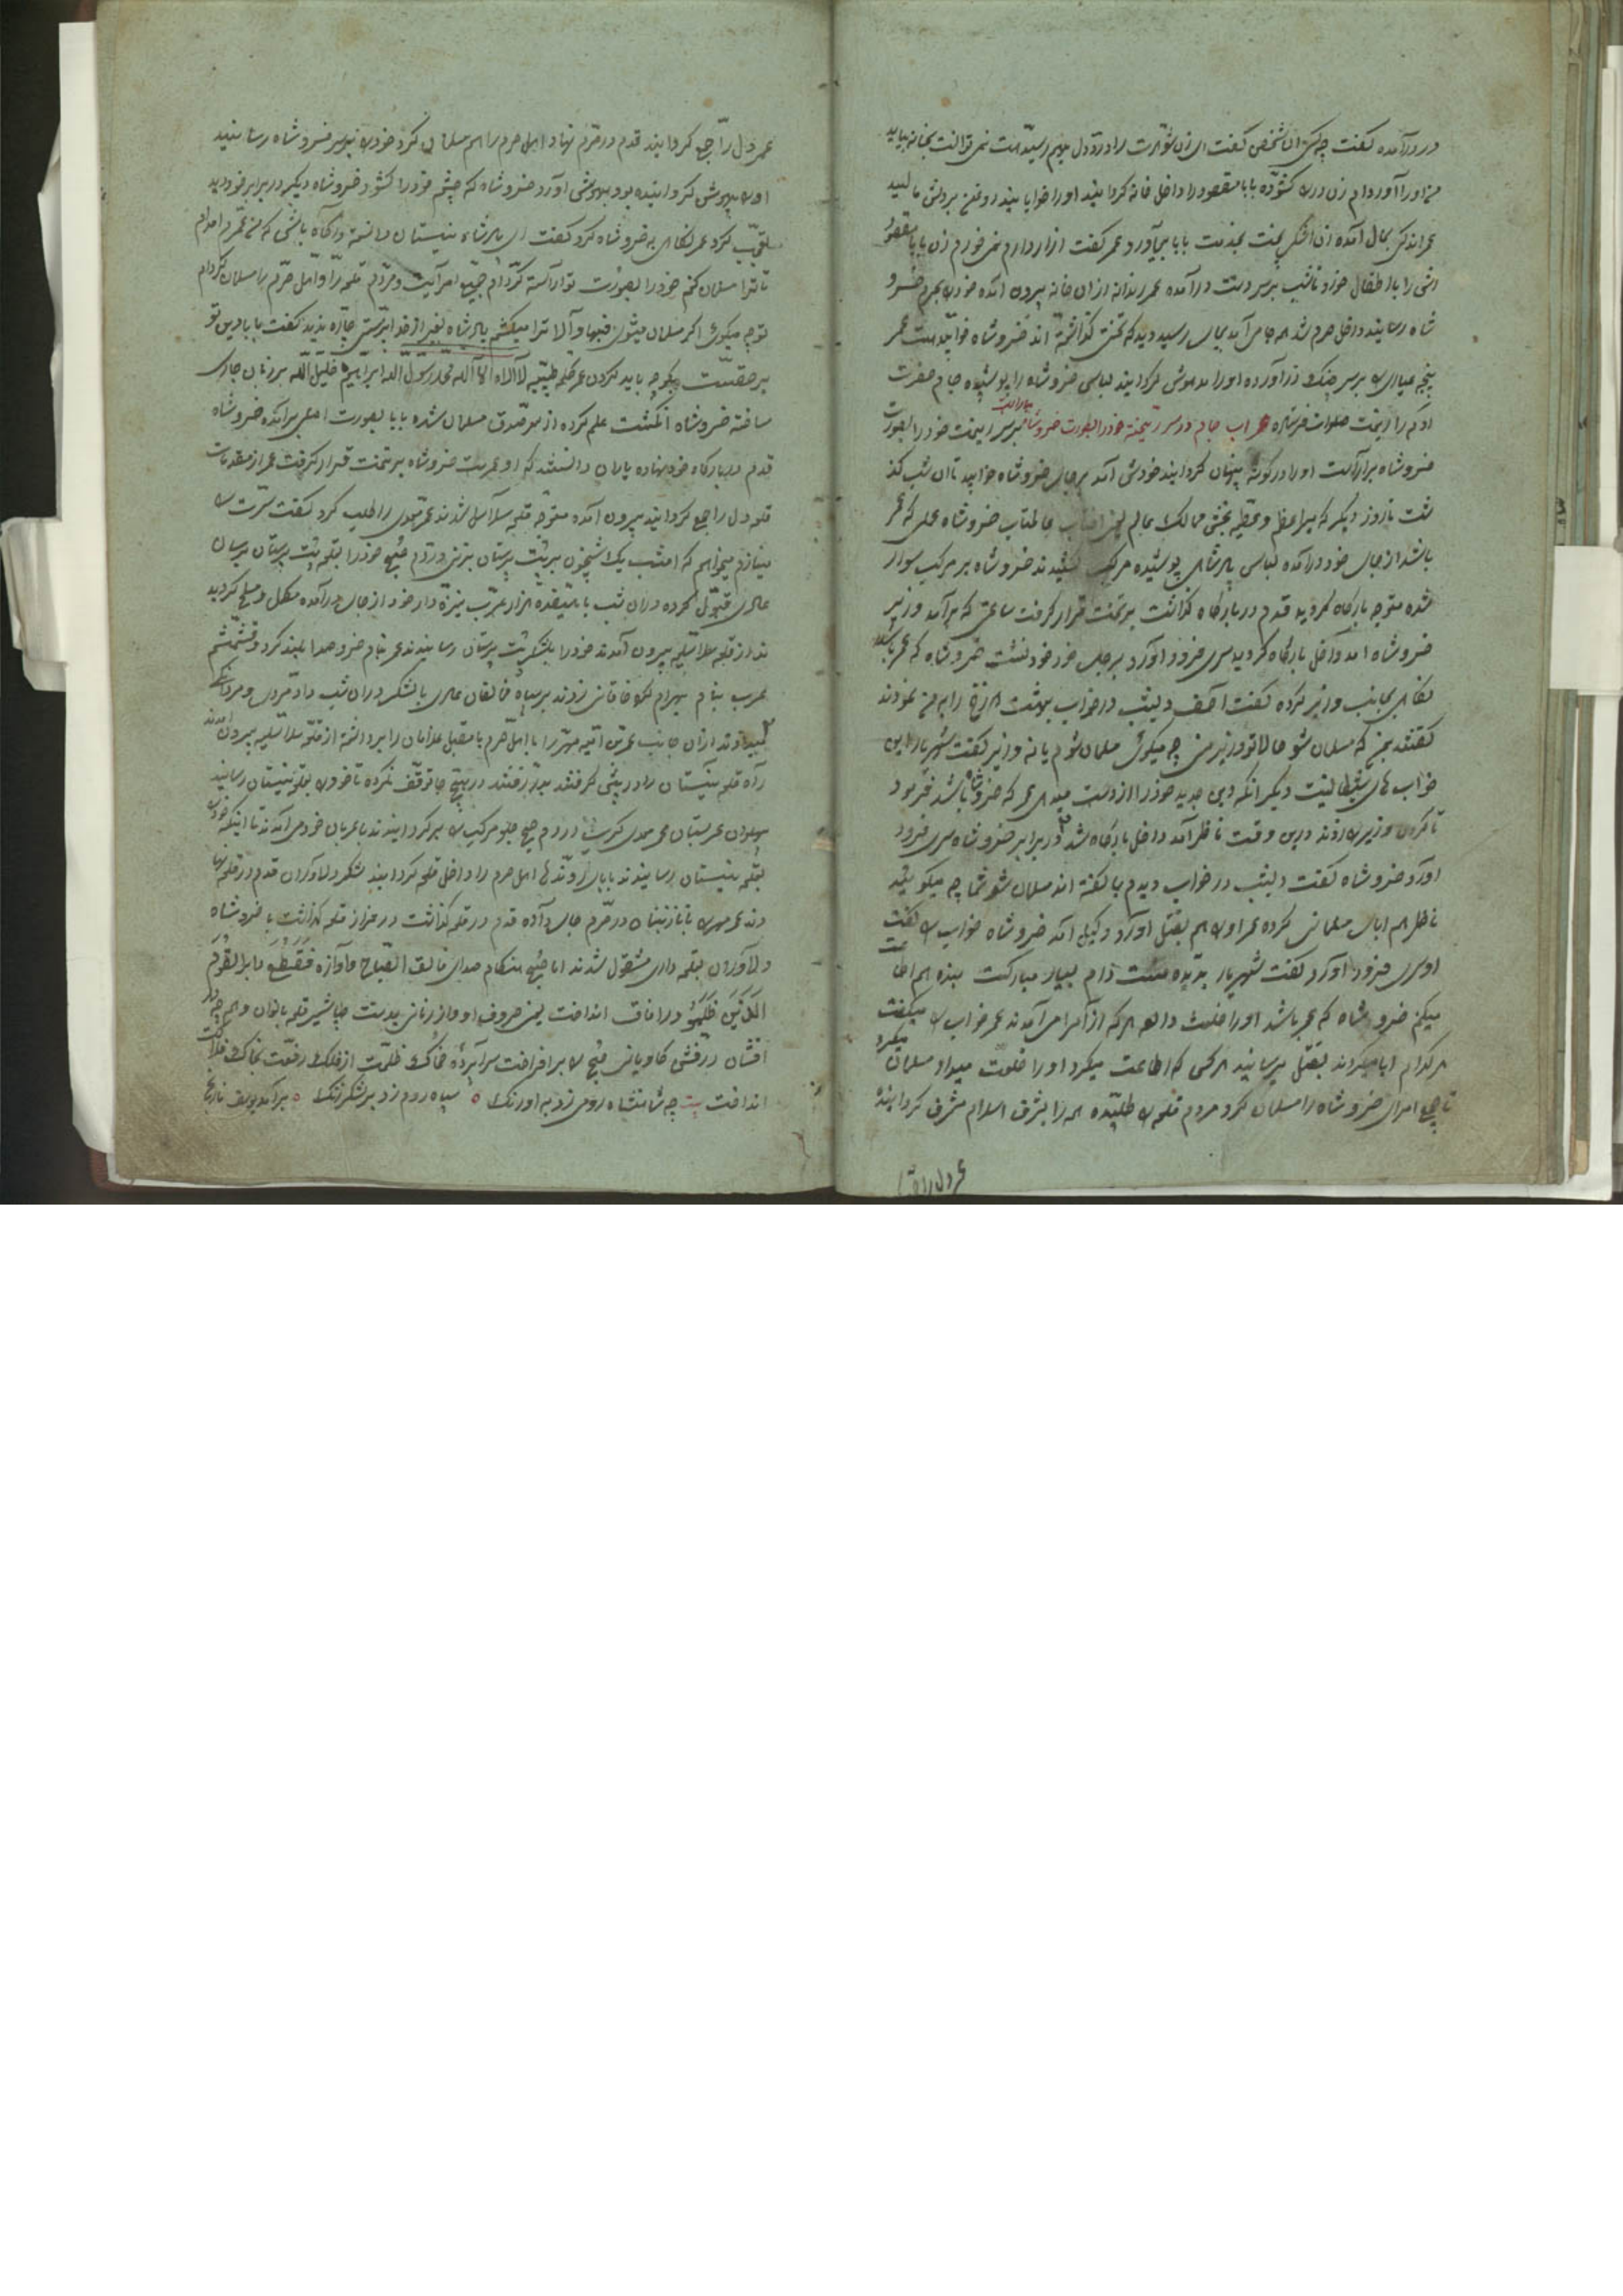 در درآمده گفت چه کسی ان شخص گفت ای زن شوهرت را درد دل بهم رسیده است نمی توانست بخانه بیاید
من اورا آورده‌ام زن در را کشوده بابا مقصود را داخل خانه کردانید اورا خوابانید روغن بردلش مالید
عمر اندکی بحال آمده زن آش پخت بخدمت بابا بیاورد عمر گفت ازار دارم نمی خورم زن بابا مقصود
اش را با اطفال خورد تا شب برسر دست درآمده عمر رندانه ازان خانه بیرون آمده خود را بحرم خسرو
شاه رسانید داخل حرم شد همه جا می آمد بجای رسید دید که تختی گذاشته اند خسرو شاه خوابیده است عمر
پنجه عیاری بر سر چنگ درآورده اورا بیهوش کردانید لباس خسرو شاه را پوشیده جام حضرت
آدم را ریخت صلوات فرستاده اب جام در سر ریخته خود را بصورت خسرو شاه بر سر ریخت خود را بصورت
خسرو شاه برآراست اورا در گوشه پنهان کردانید خودش آمد بر جای خسرو شاه خوابید تا ان شب گذ
شت تا روز دیگر که نیر اعظم و عطیه بخش ممالک عالم یعنی افتاب عالمتاب خسرو شاه عملی که عمر
باشد از جای خود درآمده لباس پادشاهی پوشیده مرکب کشیدند خسرو شاه بر مرکب سوار
شده متوجه بارگاه گردید قدم در بارگاه گذاشت بر تخت قرار گرفت ساعتی که برآمد وزیر
خسرو شاه آمد داخل بارگاه گردید سری فرود آورد بر جای خود نشست خسرو شاه که عمر باشد
نگاهی بجانب وزیر کرده گفت آصف دیشب در خواب بهشت دوزخ را به من نمودند
گفتند بمن که مسلمان شو حالا تو وزیر منی چه میگوئی مسلمان شوم یا نه وزیر گفت شهریارا این
خواب های شیطانیست دیگر آنکه دین جدید خود را از دست میدهی عمر که خسرو شاه باشد فرمود
تا گردن وزیر را زدند درین وقت ناظر آمد داخل بارگاه شد در برابر خسرو شاه سری فرود
آورد خسرو شاه گفت دیشب در خواب دیدم بما گفته اند مسلمان شو شما چه میگوئید
ناظر هم ابای مسلمانی کرده عمر اورا هم بقتل آورد وکیل آمد خسرو شاه خواب را گفت
او سری فرود آورد گفت شهریار بدیده منت دارم بسیار مبارکست بنده هم اطاعت
میکنم خسرو شاه که عمر باشد اورا خلعت داد هر که از آمرا می آمدند عمر خواب را میگفت
هر کدام ابا میکردند بقتل میرسانید هر کس که اطاعت میکرد اورا خلعت میداد مسلمان میکرد
تا جمیع امرای خسرو شاه را مسلمان کرد مردم قلعه را طلبیده همه را بشرف اسلام مشرف کردانیده
عمر دل را جمع
عمر دل را جمع کردانید قدم در حرم نهاد اهل حرم را هم مسلمان کرد خود را بر سر خسرو شاه رسانید
اورا بیهوش کردانیده بود بهوش آورد خسرو شاه که چشم خود را کشود خسرو شاه دیگر در برابر خود دید
تعجب کرد عمر نگاهی به خسرو شاه کرد گفت ای پادشاه نیستان دانسته و آگاه باشی که من عمرم آمده‌ام
تا ترا مسلمان کنم خود را بصورت تو آراسته کرده‌ام جمیع امرایت و مردم قلعه را و اهل حرم را مسلمان کرده‌ام
تو چه میگوئی اگر مسلمان میشوی فبها و الا ترا میکشم پادشاه بغیر از خدا پرستی چاره ندید گفت بابا دین تو
بر حقست بگو چه باید کردن عمر کلمه طیبه لا اله الا الله محمد رسول الله ابراهیم خلیل الله بر زبان جاری
ساخته خسرو شاه انگشت علم کرده از سر صدق مسلمان شده بابا بصورت اصلی برآمده خسرو شاه
قدم در بارگاه خود نهاده یاران دانستند که او عمر است خسرو شاه بر تخت قرار گرفت عمر از مقدمات
قلعه دل را جمع کردانید بیرون آمده متوجه قلعه سلاسل شدند عمر مهدی را طلب کرد گفت سرت را
مینازم میخواهم که امشب یک شبیخون بر بت پرستان بزنی و دم صبح خود را بقلعه نیستان برسان
علی قبول کرده دران شب با هیفده هزار عرب نیزه دار خود از جای درآمده مکمل و مسلح گردید
ند از قلعه سلاسل بیرون آمدند خود را بلشکر بت پرستان رسانیدند عمر بنام خسرو صدا بلند کرد و قشمشم
عرب بنام بهرام گرد خاقانی زدند بر سپاه مخالفان علی با لشکر دران شب داد مردی و مردانگی
میدادند ازان جانب عمر بن امیه مهر را با اهل حرم با مقبل غلامان را برداشته از قلعه سلاسل بیرون آمدند
راه قلعه نیستان را در پیش گرفتند بدر رفتند در هیچ جا توقف نکرده تا خود را بقلعه نیستان رسانید
پهلوان عربستان در دم صبح جلو مرکب را برکردانیدند با عربان خود می آمدند تا اینکه خود را
بقلعه نیستان رسانیدند بابای دونده اهل حرم را داخل قلعه کردانید لشکر دلاوران قدم در قلعه نها
دند عمر مهر را با نازنینان در حرم جای داده قدم در قلعه گذاشت با خسرو شاه
دلاوران بقلعه داری مشغول شدند اما صبح هنگام صدای فالق الصباح و آوازه فقطع دابر القوم
الذین ظلموا در آفاق انداخت
افشان درفش کاویانی صبح را برافراخت سرآپرده ظلمت از فلک
انداخت بیت چه شاهنشاه رومی زد به اورنگ ه سپاه روم زد بر لشکر زنگ ه